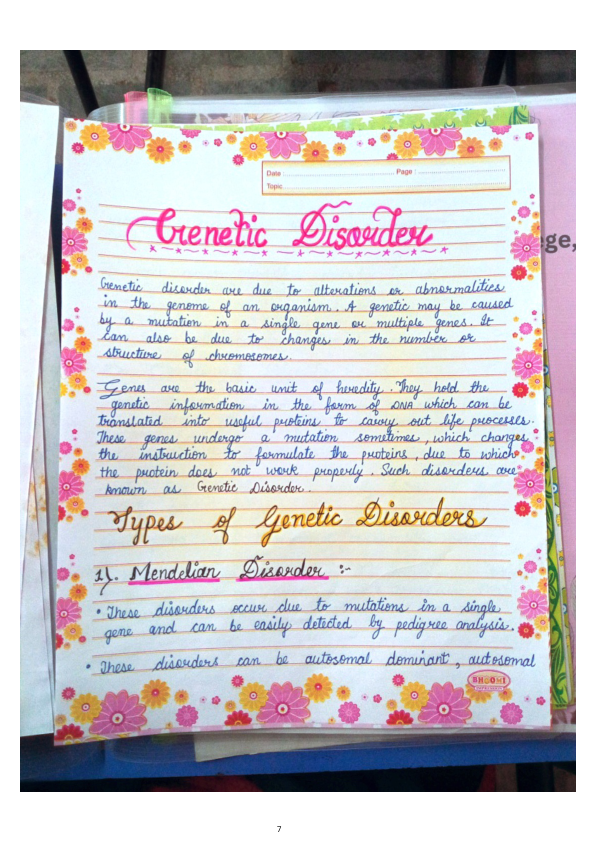 Date
Page :
Topic
ge,
Genetic Disorder
Genetic disorder are due to alterations or abnormalities
in the genome of an organism. A genetic may be caused
by a mutation in a single gene or multiple genes. It
can also be due to changes in the number or
structure of chromosomes.
Genes are the basic unit of heredity. They hold the
genetic information in the form of DNA which can be
translated into useful proteins to carry out life processes.
These genes undergo a mutation sometimes, which changes
the instruction to formulate the proteins, due to which
the protein does not work properly. Such disorders are
known as Genetic Disorder.
Types of Genetic Disorders
1). Mendelian Disorder :-
• These disorders occur due to mutations in a single
gene and can be easily detected by pedigree analysis.
• These disorders can be autosomal dominant, autosomal
BHOOMI
7